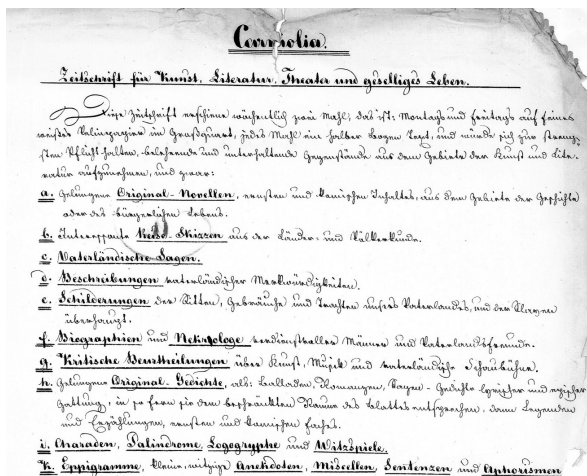 Carniolia.
Zeitschrift für Kunst, Literatur, Theater und geselliges Leben.
Diese Zeitschrift erschiene wöchentlich zwei Mahl, das ist: Montags und Freitags auf feinem
weißen Velinpapier in Großquart, jedes Mahl ein halber Bogen Text, und würde sich zur streng-
sten Pflicht halten, belehrende und unterhaltende Gegenstände aus dem Gebiete der Kunst und Lite-
ratur aufzunehmen, und zwar:
a. Gelungene Original-Novellen, ernsten und komischen Inhaltes, aus dem Gebiete der Geschichte
oder des bürgerlichen Lebens.
b. Interessante Reise-Skizzen aus der Länder- und Völkerkunde.
c. Vaterländische Sagen.
d. Beschreibungen vaterländischer Merkwürdigkeiten.
e. Schilderungen der Sitten, Gebräuche und Trachten unsres Vaterlandes, und der Slaven
überhaupt.
f. Biographien und Nekrologe verdienstvoller Männer und Vaterlandsfreunde.
g. Kritische Beurtheilungen über Kunst, Musik und vaterländische Schaubühne.
h. Gelungene Original-Gedichte, als: Balladen, Romanzen, Sagen-Gedichte lyrischer und epischer
Gattung, in so fern sie dem beschränkten Raume des Blattes entsprechen, dann Legenden
und Erzählungen, ernsten und komischen Faches.
i. Charaden, Palindrome, Logogryphe und Witzspiele.
k. Eppigramme, kleine, witzige Anekdoten, Miscellen, Sentenzen und Aphorismen